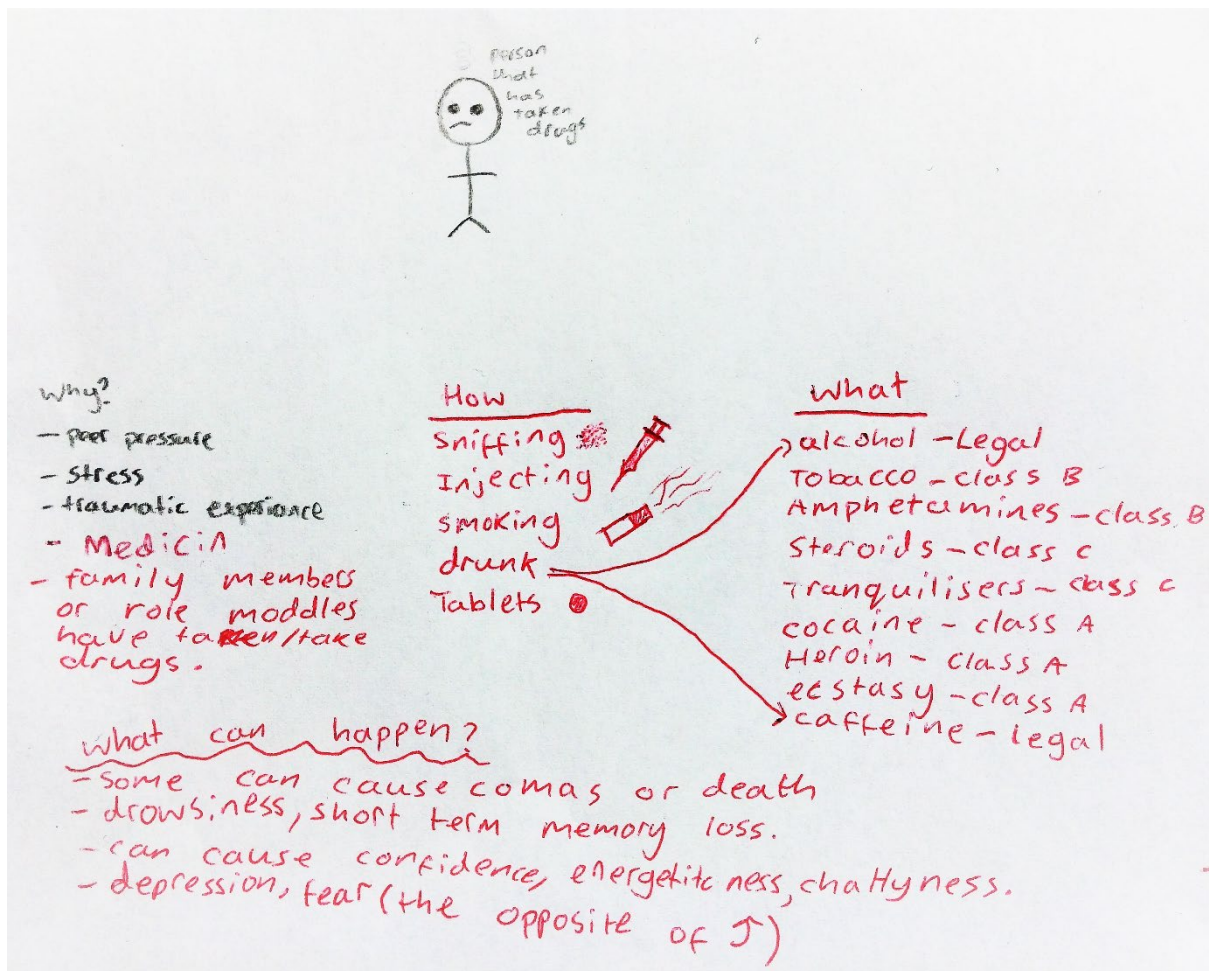 person
what
has
taken
drugs
Why?
- peer pressure
- stress
- traumatic experiance
- Medicin
- family members
or role moddles
have taken/take
drugs.
How
sniffing
Injecting
smoking
drunk
Tablets
What
alcohol - Legal
Tobacco - class B
Amphetamines - class B
Steroids - class c
Tranquilisers - class c
cocaine - class A
Heroin - class A
ecstasy - class A
caffeine - legal
What can happen?
- some can cause comas or death
- drowsiness, short term memory loss.
- can cause confidence, energetitcness, chattyness.
- depression, fear (the opposite of ↑)